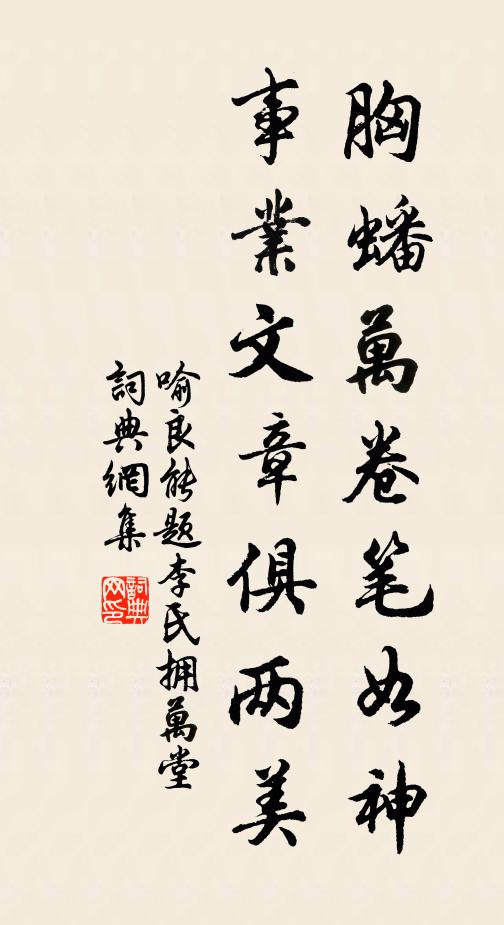 胸蟠萬卷笔如神
事業文章俱两美
喻良能题李氏拥萬堂
詞典網集
詞典网印